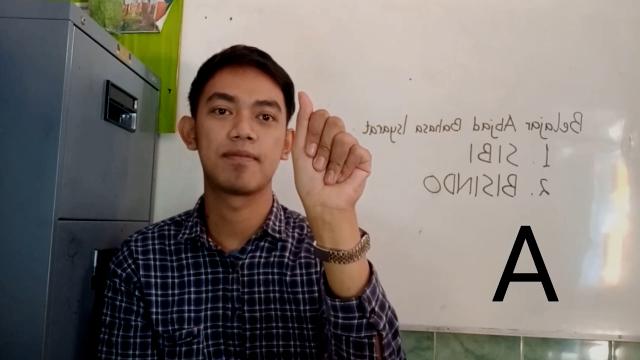 Belajar Abjad Bahasa Isyarat
1. SIBI
2. BISINDO
A